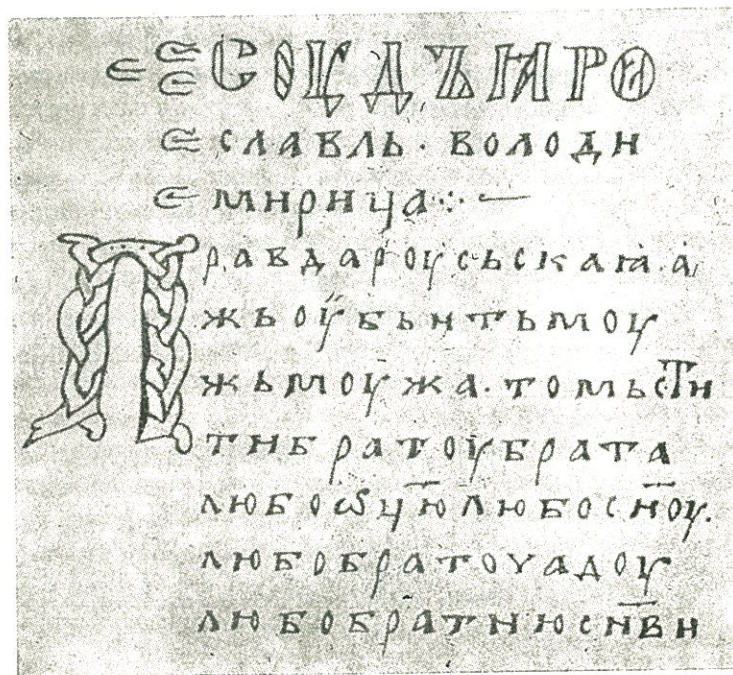 СОУДЪꙖРО
славль · володи
мирица :· —
Правдароусьскаꙗ · а
жьоубьитьмоу
жьмоужа · томьсти
тибратоубрата
любоѡц҃юлюбосн҃оу.
любобратоучадоу
любобратнюсн҃ви